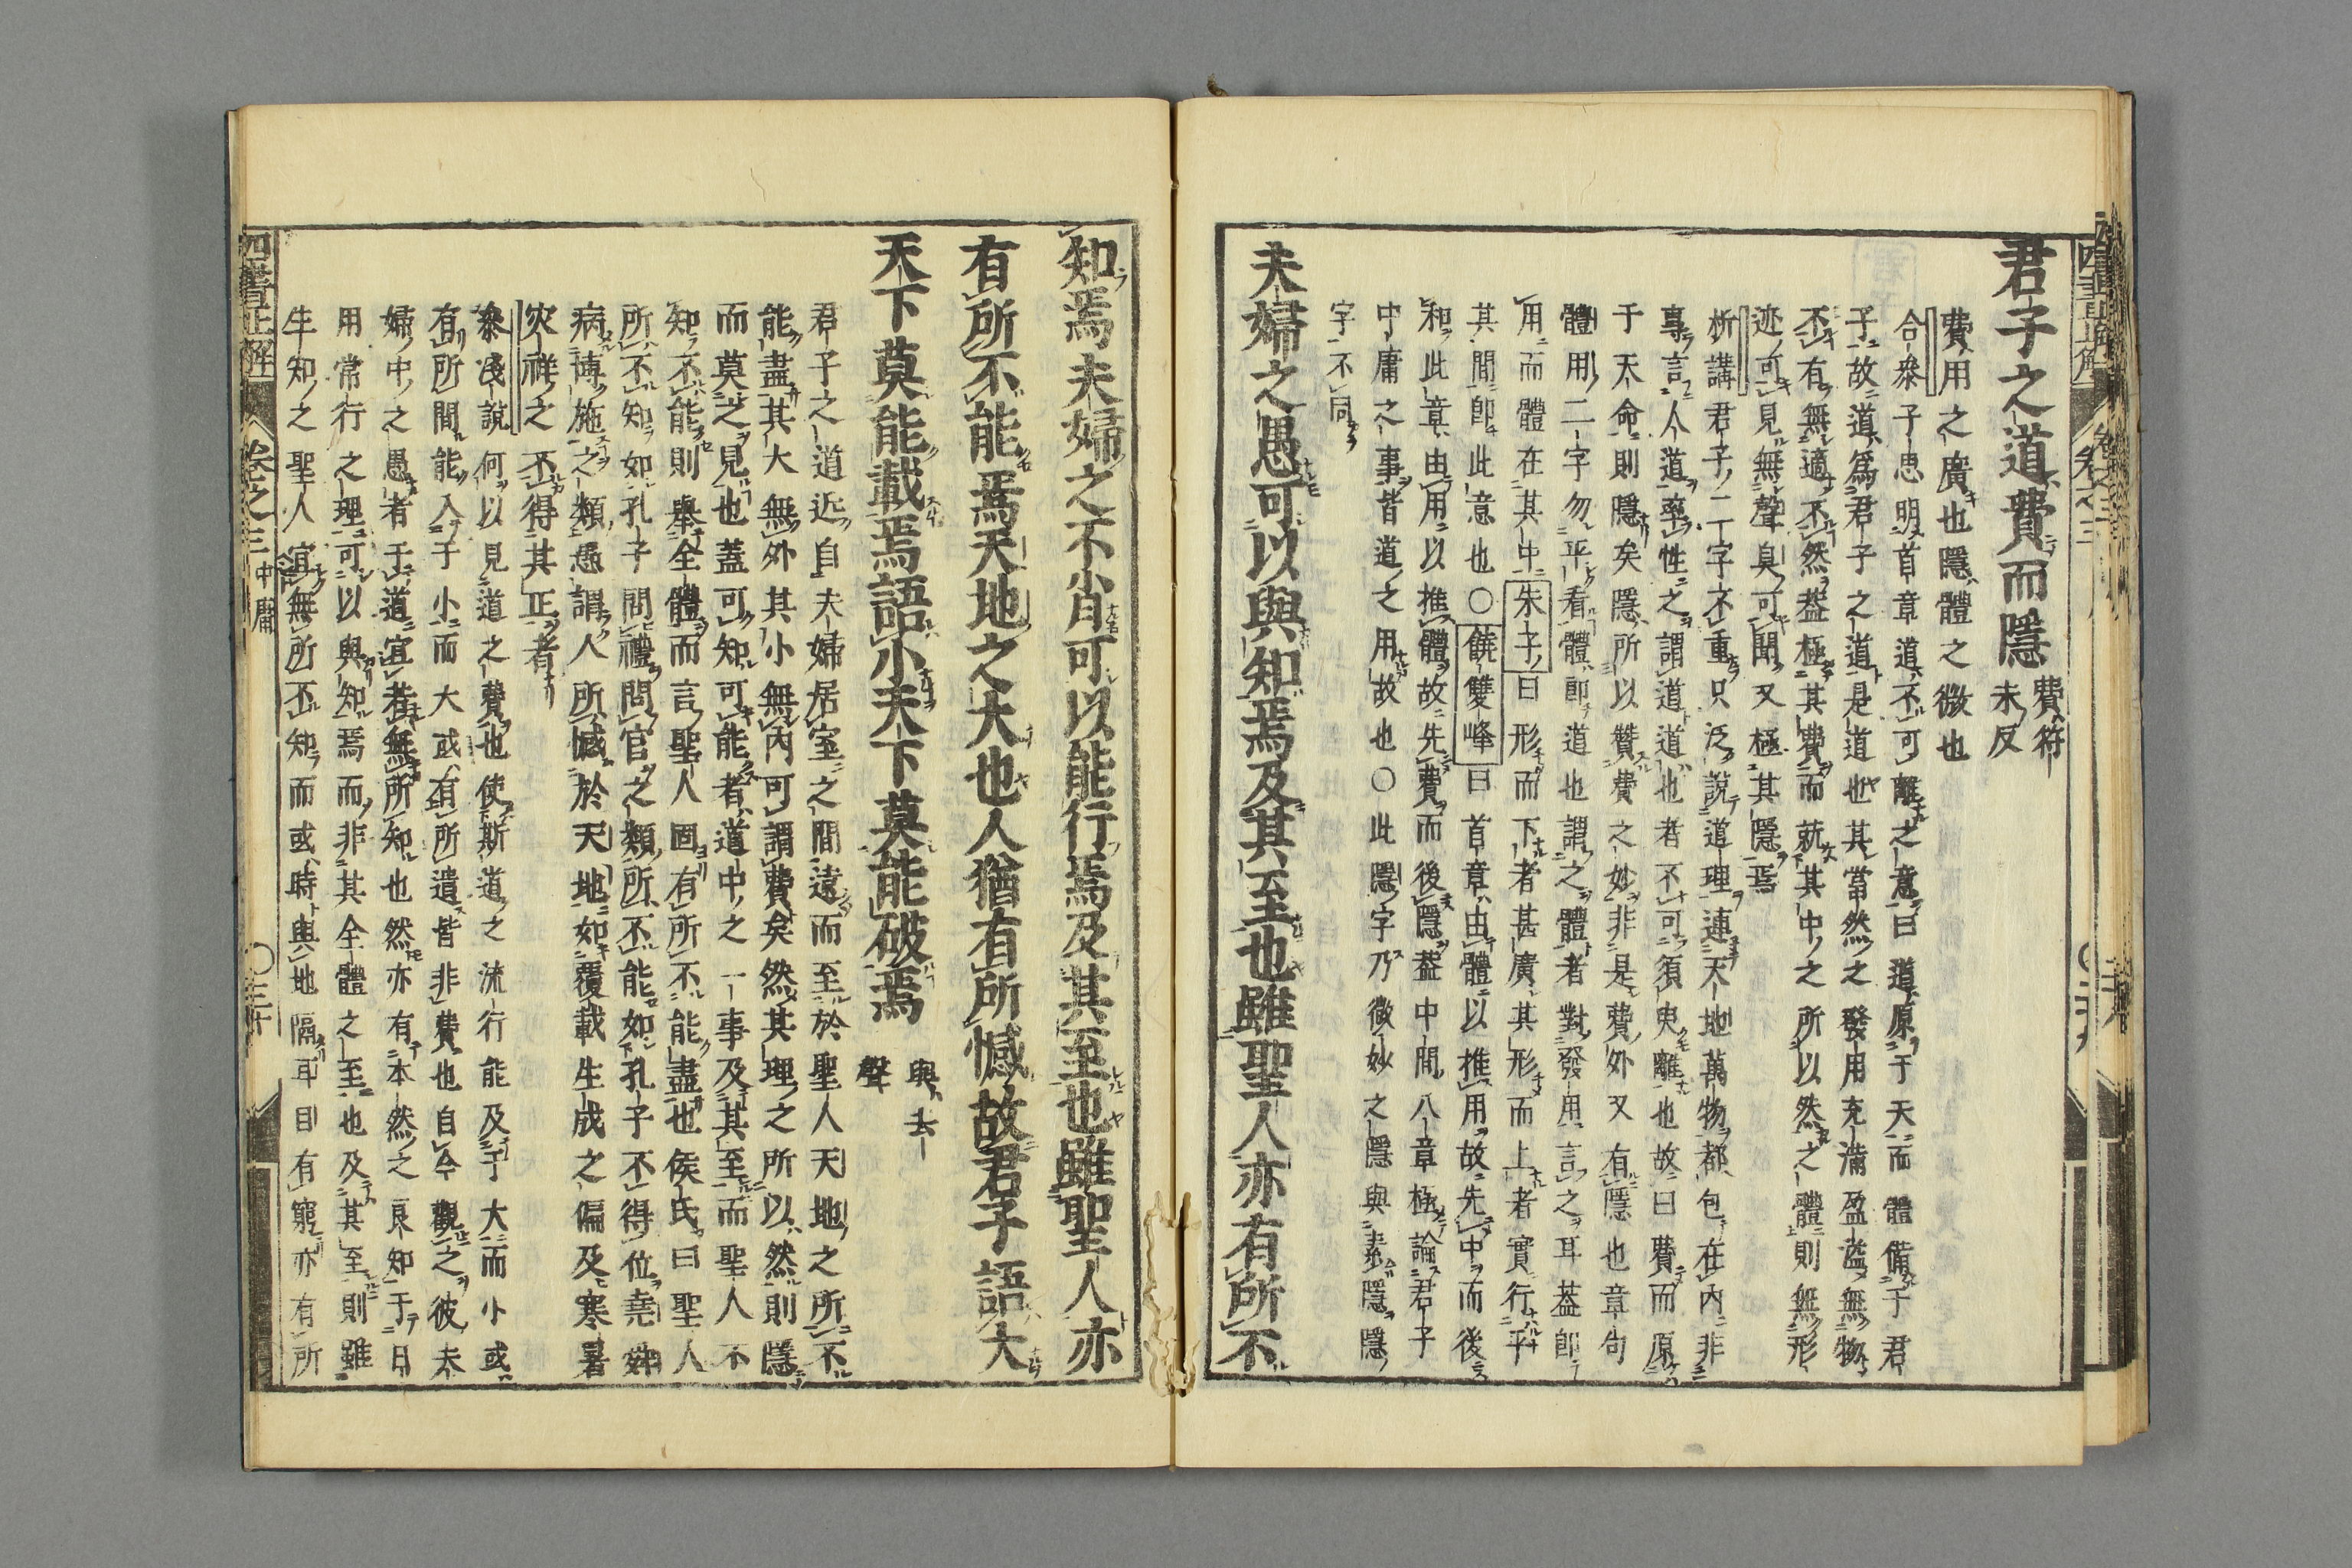 君子之道費而隱 費符未反
費用之廣也隱體之微也
合參子思明首章道不可離之意曰道原于天而體備于君
子故道爲君子之道是道也其當然之發用充滿盈溢無物
不有無適不然益極其費而就其中之所以然之體則無形
迹可見無聲臭可聞又極其隱焉
析講君子二丁字不重只泛說道理連天地萬物都包在内非
專言人道率性之謂道道也者不可須臾離也故曰費而原
于天命則隱矣隱所以贊費之妙非是費外又有隱也章句
體用二字勿平看體即道也謂之體者對發用言之耳葢即
用而體在其中朱子曰形而下者甚廣其形而上者實行乎
其間即此意也〇饒雙峰曰首章由體以推用故先中而後
和此章由用以推體故先費而後隱葢中間八章極論君子
中庸之事皆道之用故也〇此隱字乃微妙之隱與素隱隱
字不同
夫婦之愚可以與知焉及其至也雖聖人亦有所不
知焉夫婦之不肖可以能行焉及其至也雖聖人亦
有所不能焉天地之大也人猶有所憾故君子語大
天下莫能載焉語小天下莫能破焉 與去聲
君子之道近自夫婦居室之間遠而至於聖人天地之所不
能盡其大無外其小無内可謂費矣然其理之所以然則隱
而莫之見也蓋可知可能者道中之一事及其至而聖人不
知不能則舉全體而言聖人固有所不能盡也侯氏曰聖人
所不知如孔子問禮問官之類所不能如孔子不得位堯舜
病博施之類愚謂人所憾於天地如覆載生成之偏及寒暑
災祥之不得其正者
參淺說何以見道之費也使斯道之流行能及于大而小或
有所間能入于小而大或有所遺皆非費也自今觀之彼夫
婦中之愚者于道宜若無所知也然亦有本然之良知于日
用常行之理可以與知焉而非其全體之至也及其至則雖
生知之聖人宜無所不知而或時與地隔耳目有窮亦有所
四書正解 卷之三 中庸 〇三十